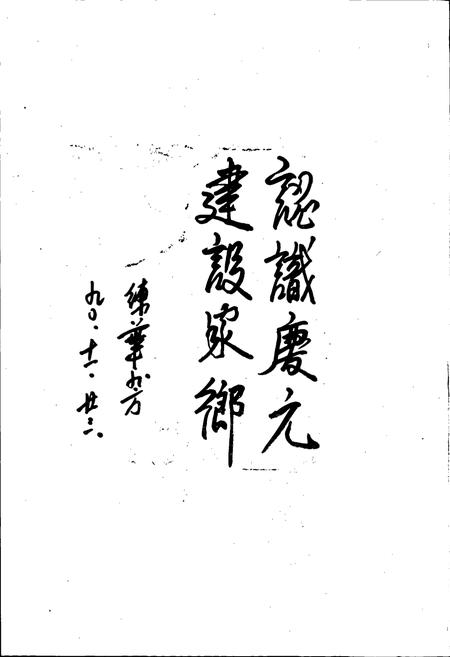 認識慶元
建設家鄉
練華
九〇.十一.廿三.